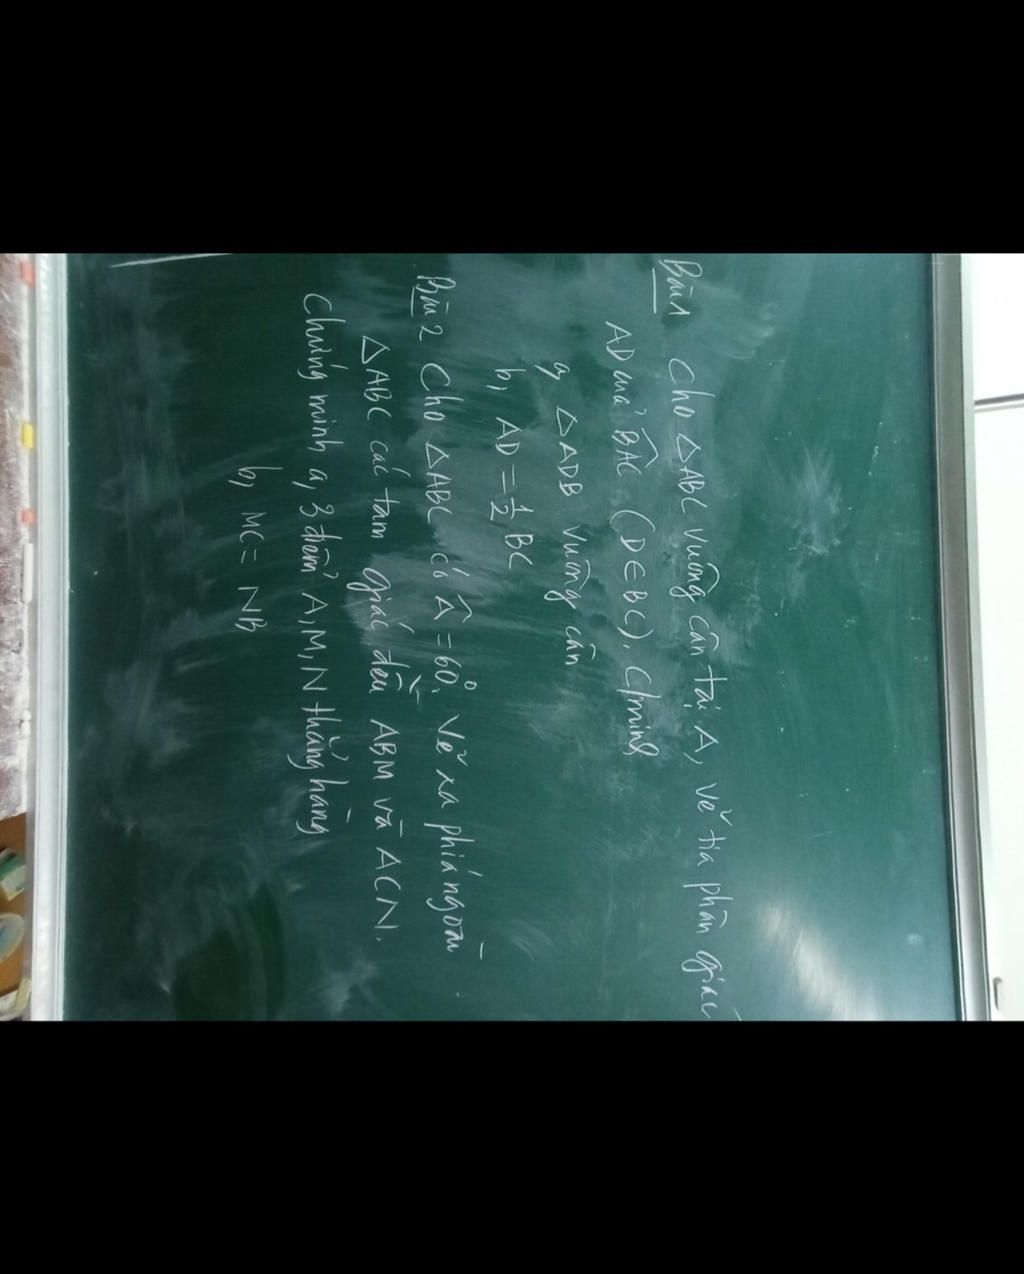 Bài 1 Cho △ABC vuông cân tại A, vẽ tia phân giác
AD của BÂC (D∈BC). C/minh
a, △ADB vuông cân
b, AD = 1/2 BC
Bài 2 Cho △ABC có Â = 60°. Vẽ ra phía ngoài
△ABC các tam giác đều ABM và ACN.
Chứng minh a, 3 điểm A, M, N thẳng hàng
b, MC = NB